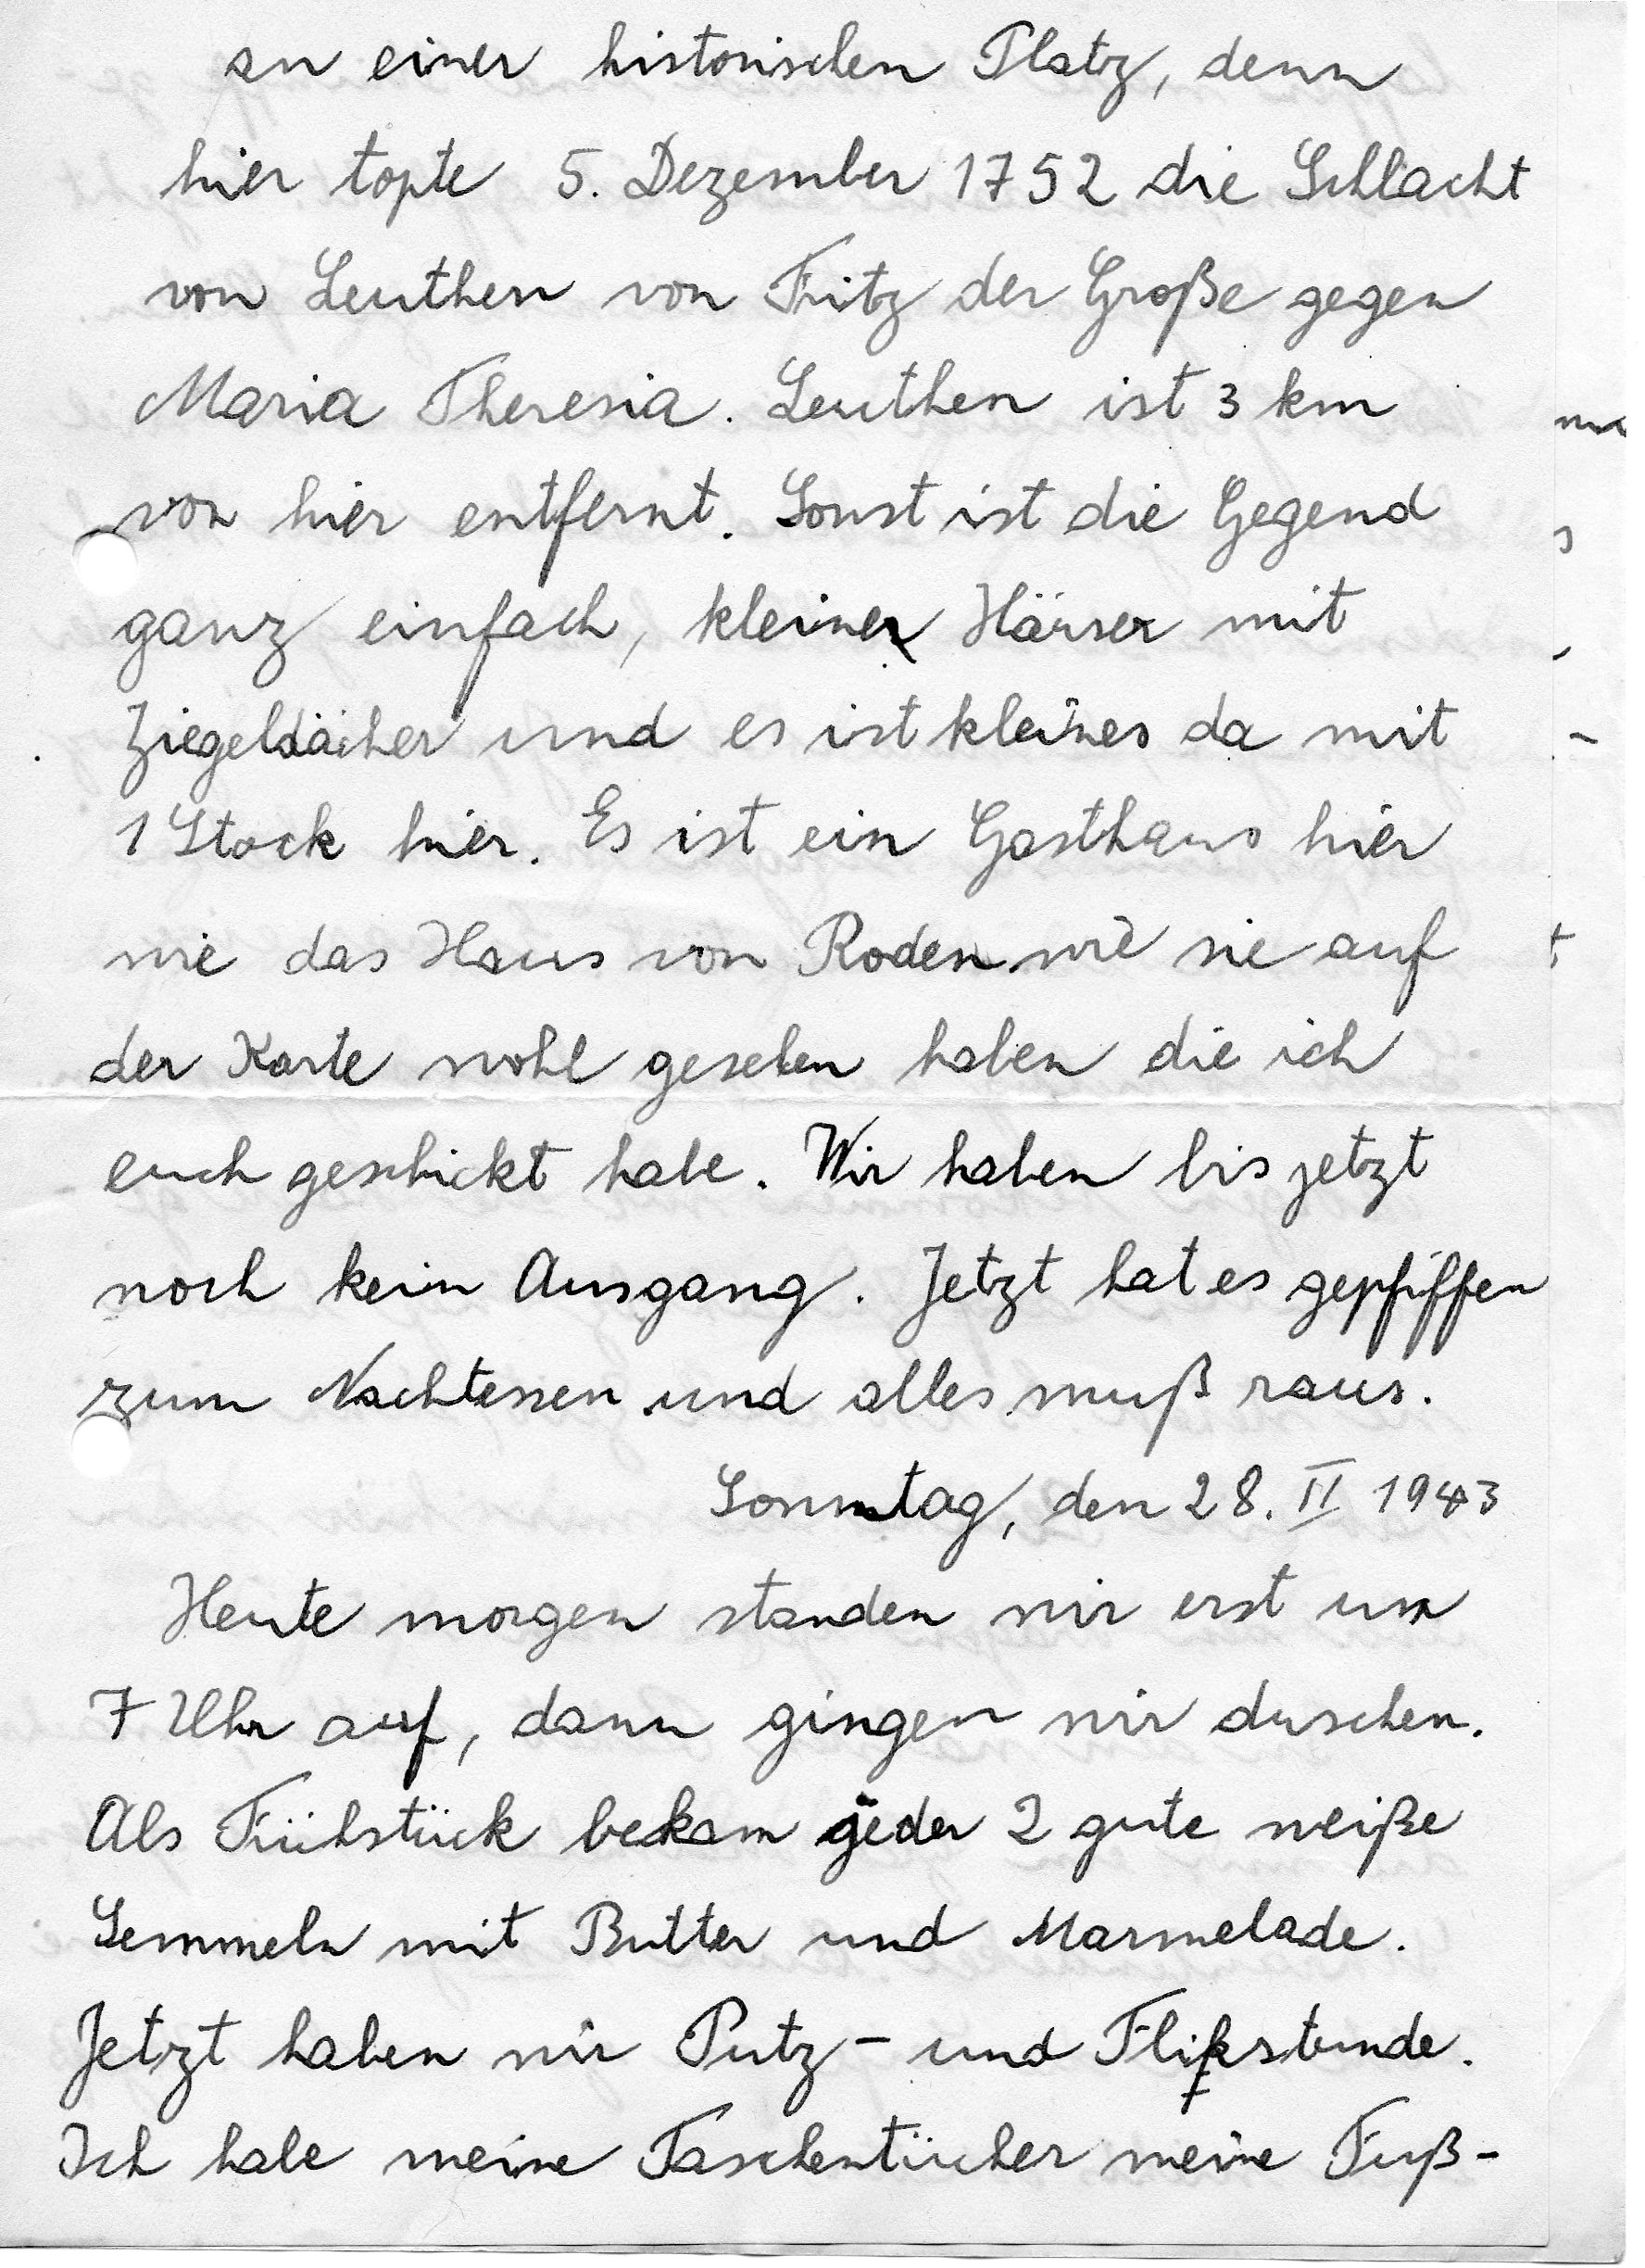 an einer historischen Platz, denn
hier topte 5. Dezember 1752 die Schlacht
von Leuthen von Fritz der Große gegen
Maria Theresia. Leuthen ist 3 km
von hier entfernt. Sonst ist die Gegend
ganz einfach, kleine Häuser mit
Ziegeldächer und es ist kleines da mit
1 Stock hier. Es ist ein Gasthaus hier
wie das Haus von Roden wie sie auf
der Karte wohl gesehen haben die ich
euch geschickt habe. Wir haben bis jetzt
noch kein Ausgang. Jetzt hat es gepfiffen
zum Nachtessen und alles muß raus.
Sonntag, den 28. II 1943
Heute morgen standen wir erst um
7 Uhr auf, dann gingen wir duschen.
Als Frühstück bekam jeder 2 gute weiße
Semmeln mit Butter und Marmelade.
Jetzt haben wir Putz- und Flikstunde.
Ich habe meine Taschentücher meine Fuß-